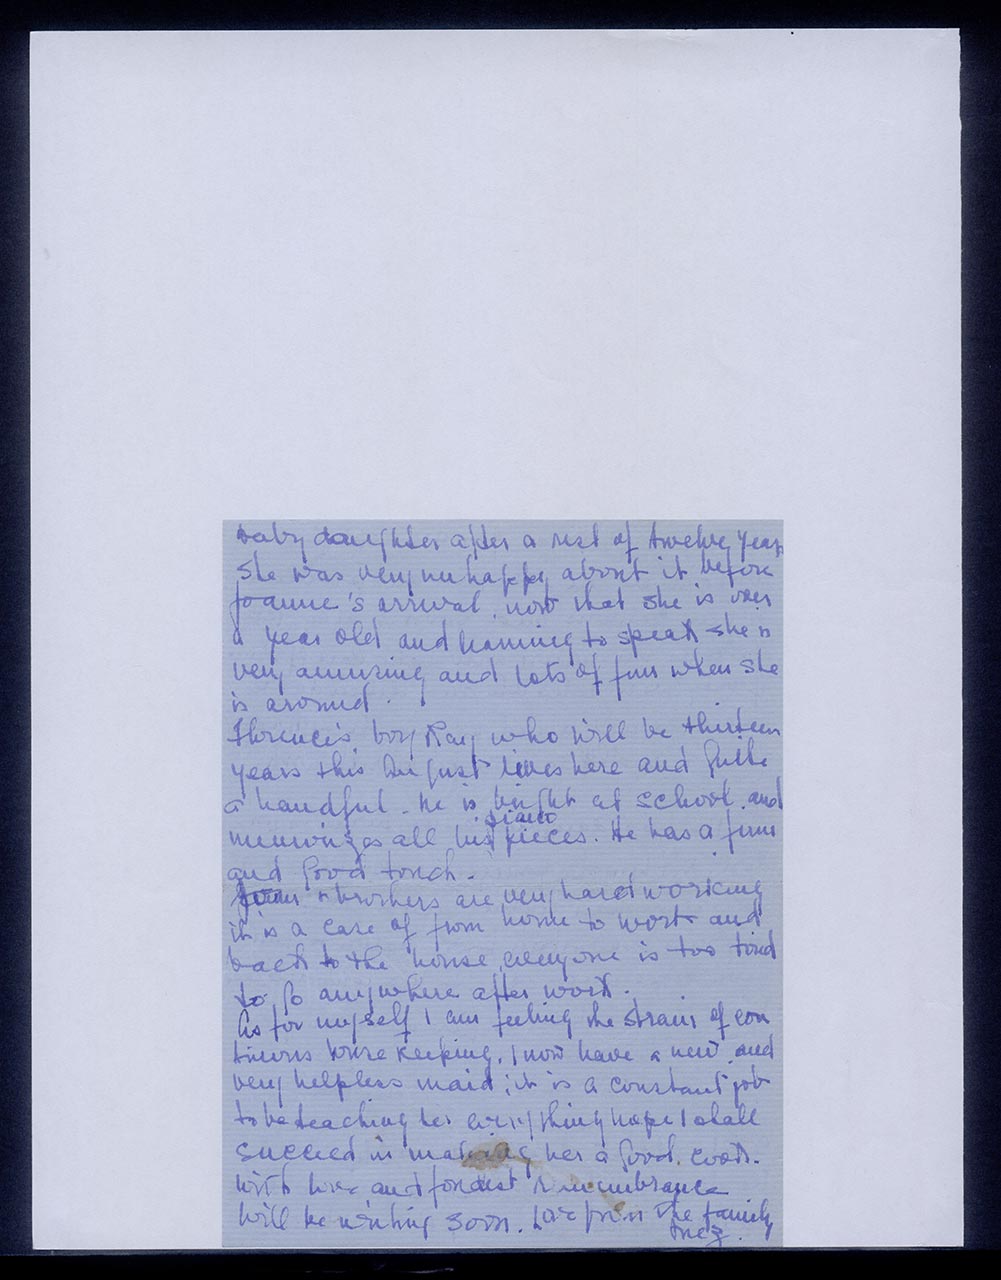 baby daughter after a rest of twelve years
She was very unhappy about it before
Joanne's arrival, now that she is over
a year old and learning to speak she is
very amusing and lots of fun when she
is around.
Florence's boy Ray who will be thirteen
years this August lives here and quite
a handful. He is bright at school, and
memorizes all his piano pieces. He has a firm
and good touch.
brothers are very hard working
it is a case of from home to work and
back to the house, everyone is too tired
to go anywhere after work.
As for myself I am feeling the strain of con
tinous house keeping. I now have a new and
very helpless maid; it is a constant job
to be teaching her everything hope I shall
succeed in making her a good cook.
With love and fondest remembrance
will be writing soon. Love from the family
Inez.